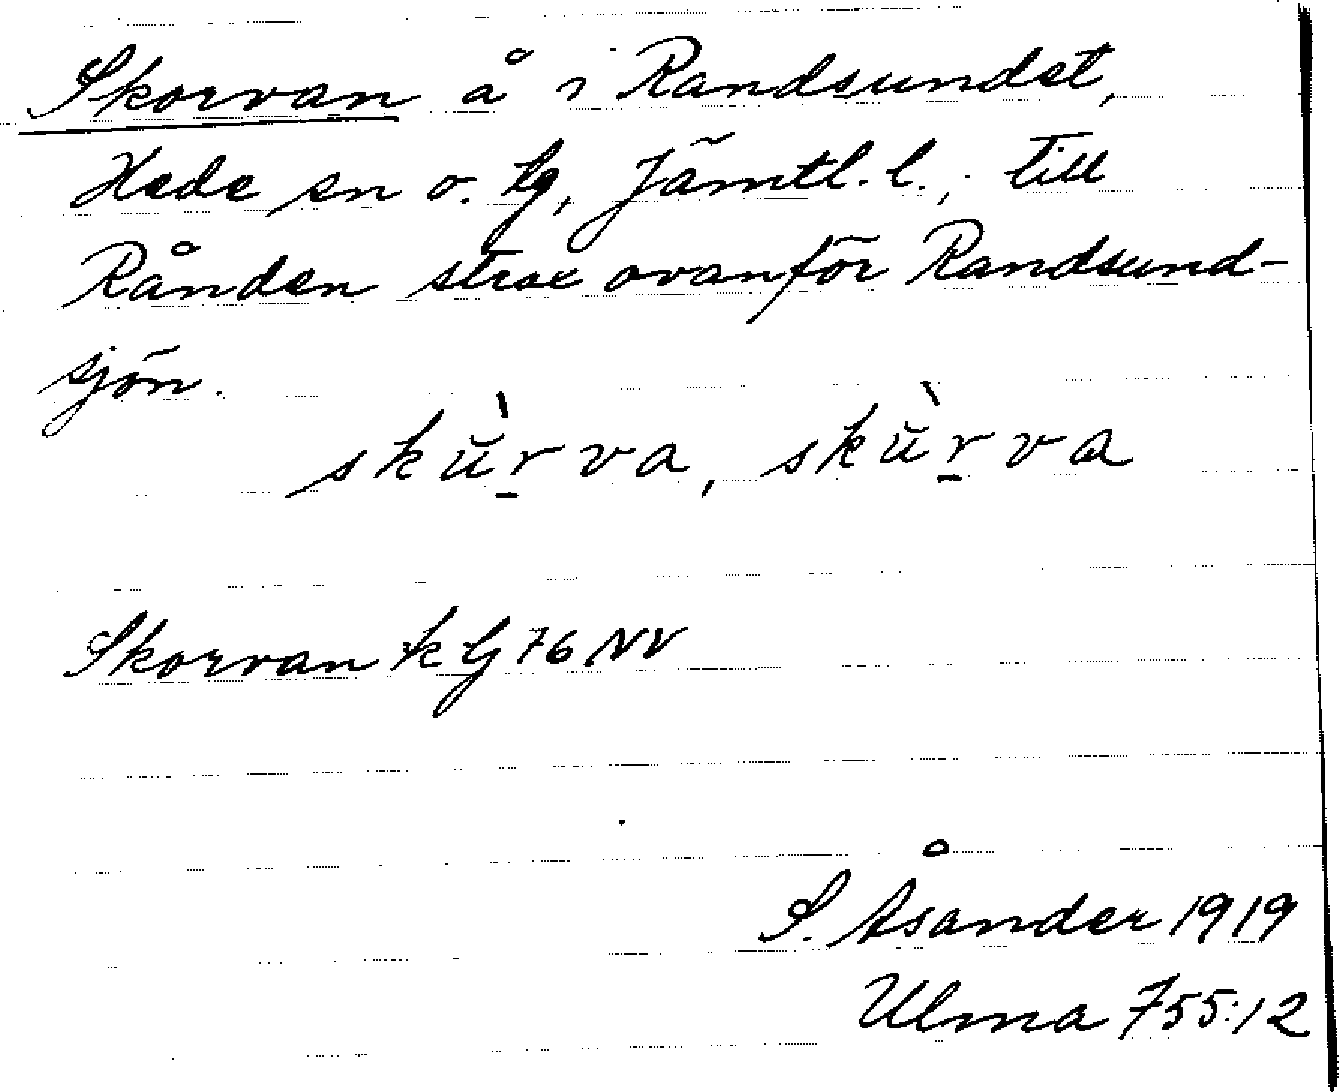 Skorvan å i Randsundet,
Hede sn o. tg, Jämtl. l., till
Rånden strax ovanför Randsund-
sjön.
skŭ̀r̲va, skù̆r̲va
Skorvan k G 76 NV
S. Åsander 1919
Ulma 755:12